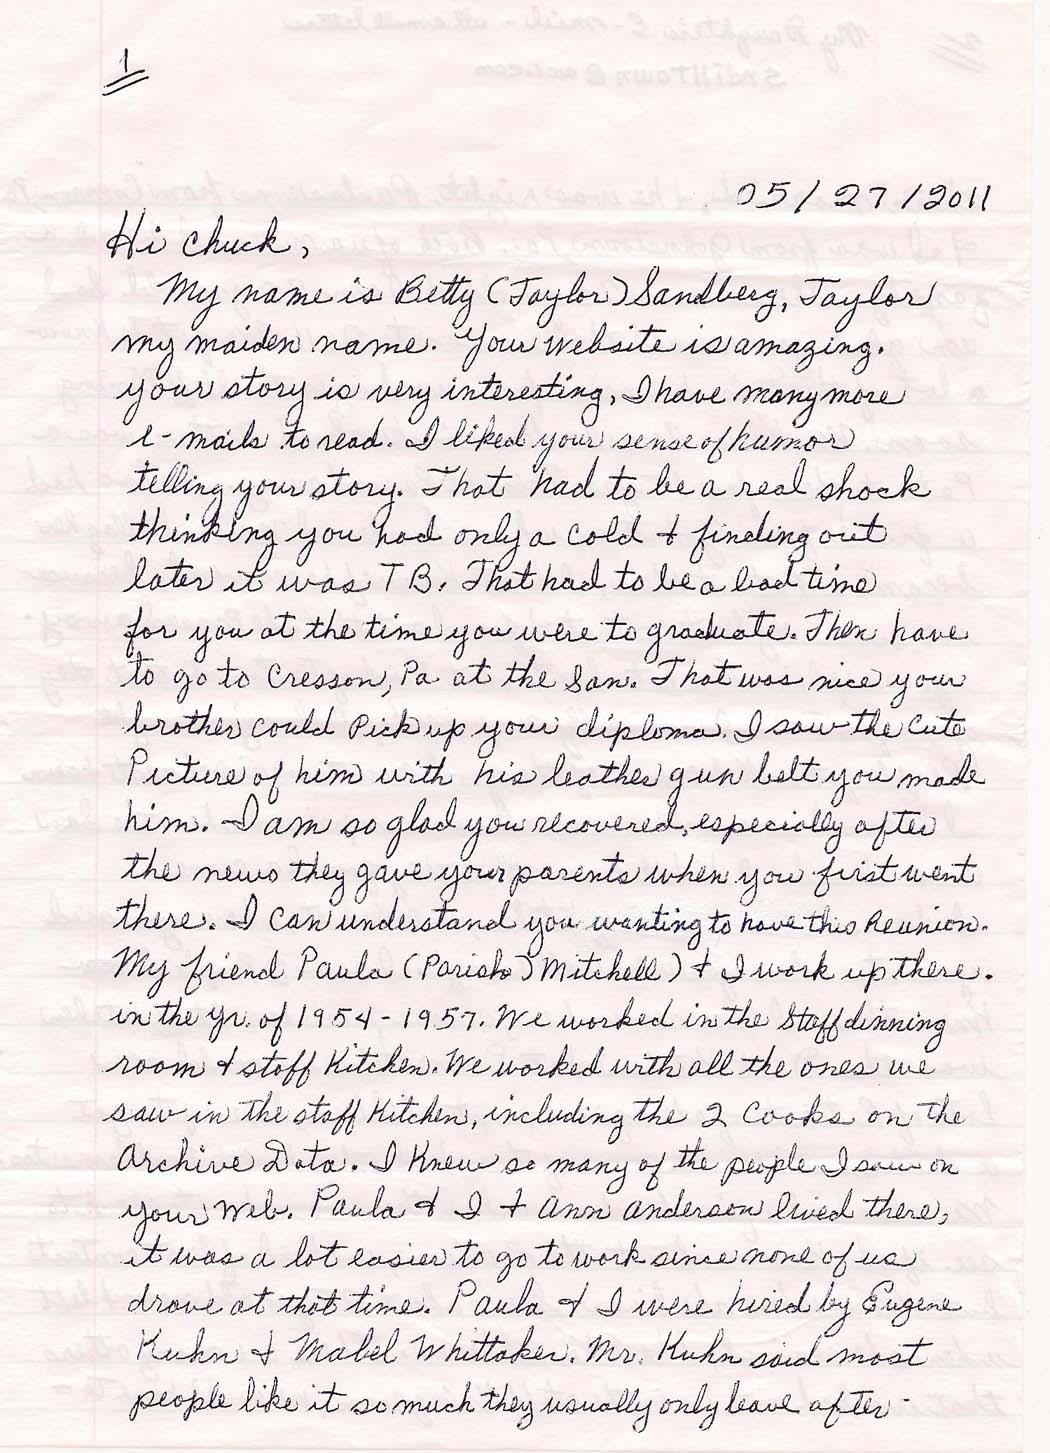 1
05/27/2011
Hi Chuck,
My name is Betty (Taylor) Sandberg, Taylor
my maiden name. Your website is amazing.
your story is very interesting, I have many more
e-mails to read. I liked your sense of humor
telling your story. That had to be a real shock
thinking you had only a cold & finding out
later it was TB. That had to be a bad time
for you at the time you were to graduate. Then have
to go to Cresson, Pa at the San. That was nice your
brother could Pick up your diploma. I saw the Cute
Picture of him with his leather gun belt you made
him. I am so glad you recovered, especially after
the news they gave your parents when you first went
there. I can understand you wanting to have this Reunion.
My friend Paula (Parish) Mitchell) & I work up there.
in the yr. of 1954-1957. We worked in the Staff dinning
room & staff Kitchen. We worked with all the ones we
saw in the staff Kitchen, including the 2 Cooks on the
Archive Data. I Knew so many of the people I saw on
your Web. Paula & I & Ann Anderson lived there,
it was a lot easier to go to work since none of us
drove at that time. Paula & I were hired by Eugene
Kuhn & Mabel Whittaker. Mr. Kuhn said most
people like it so much they usually only leave after-